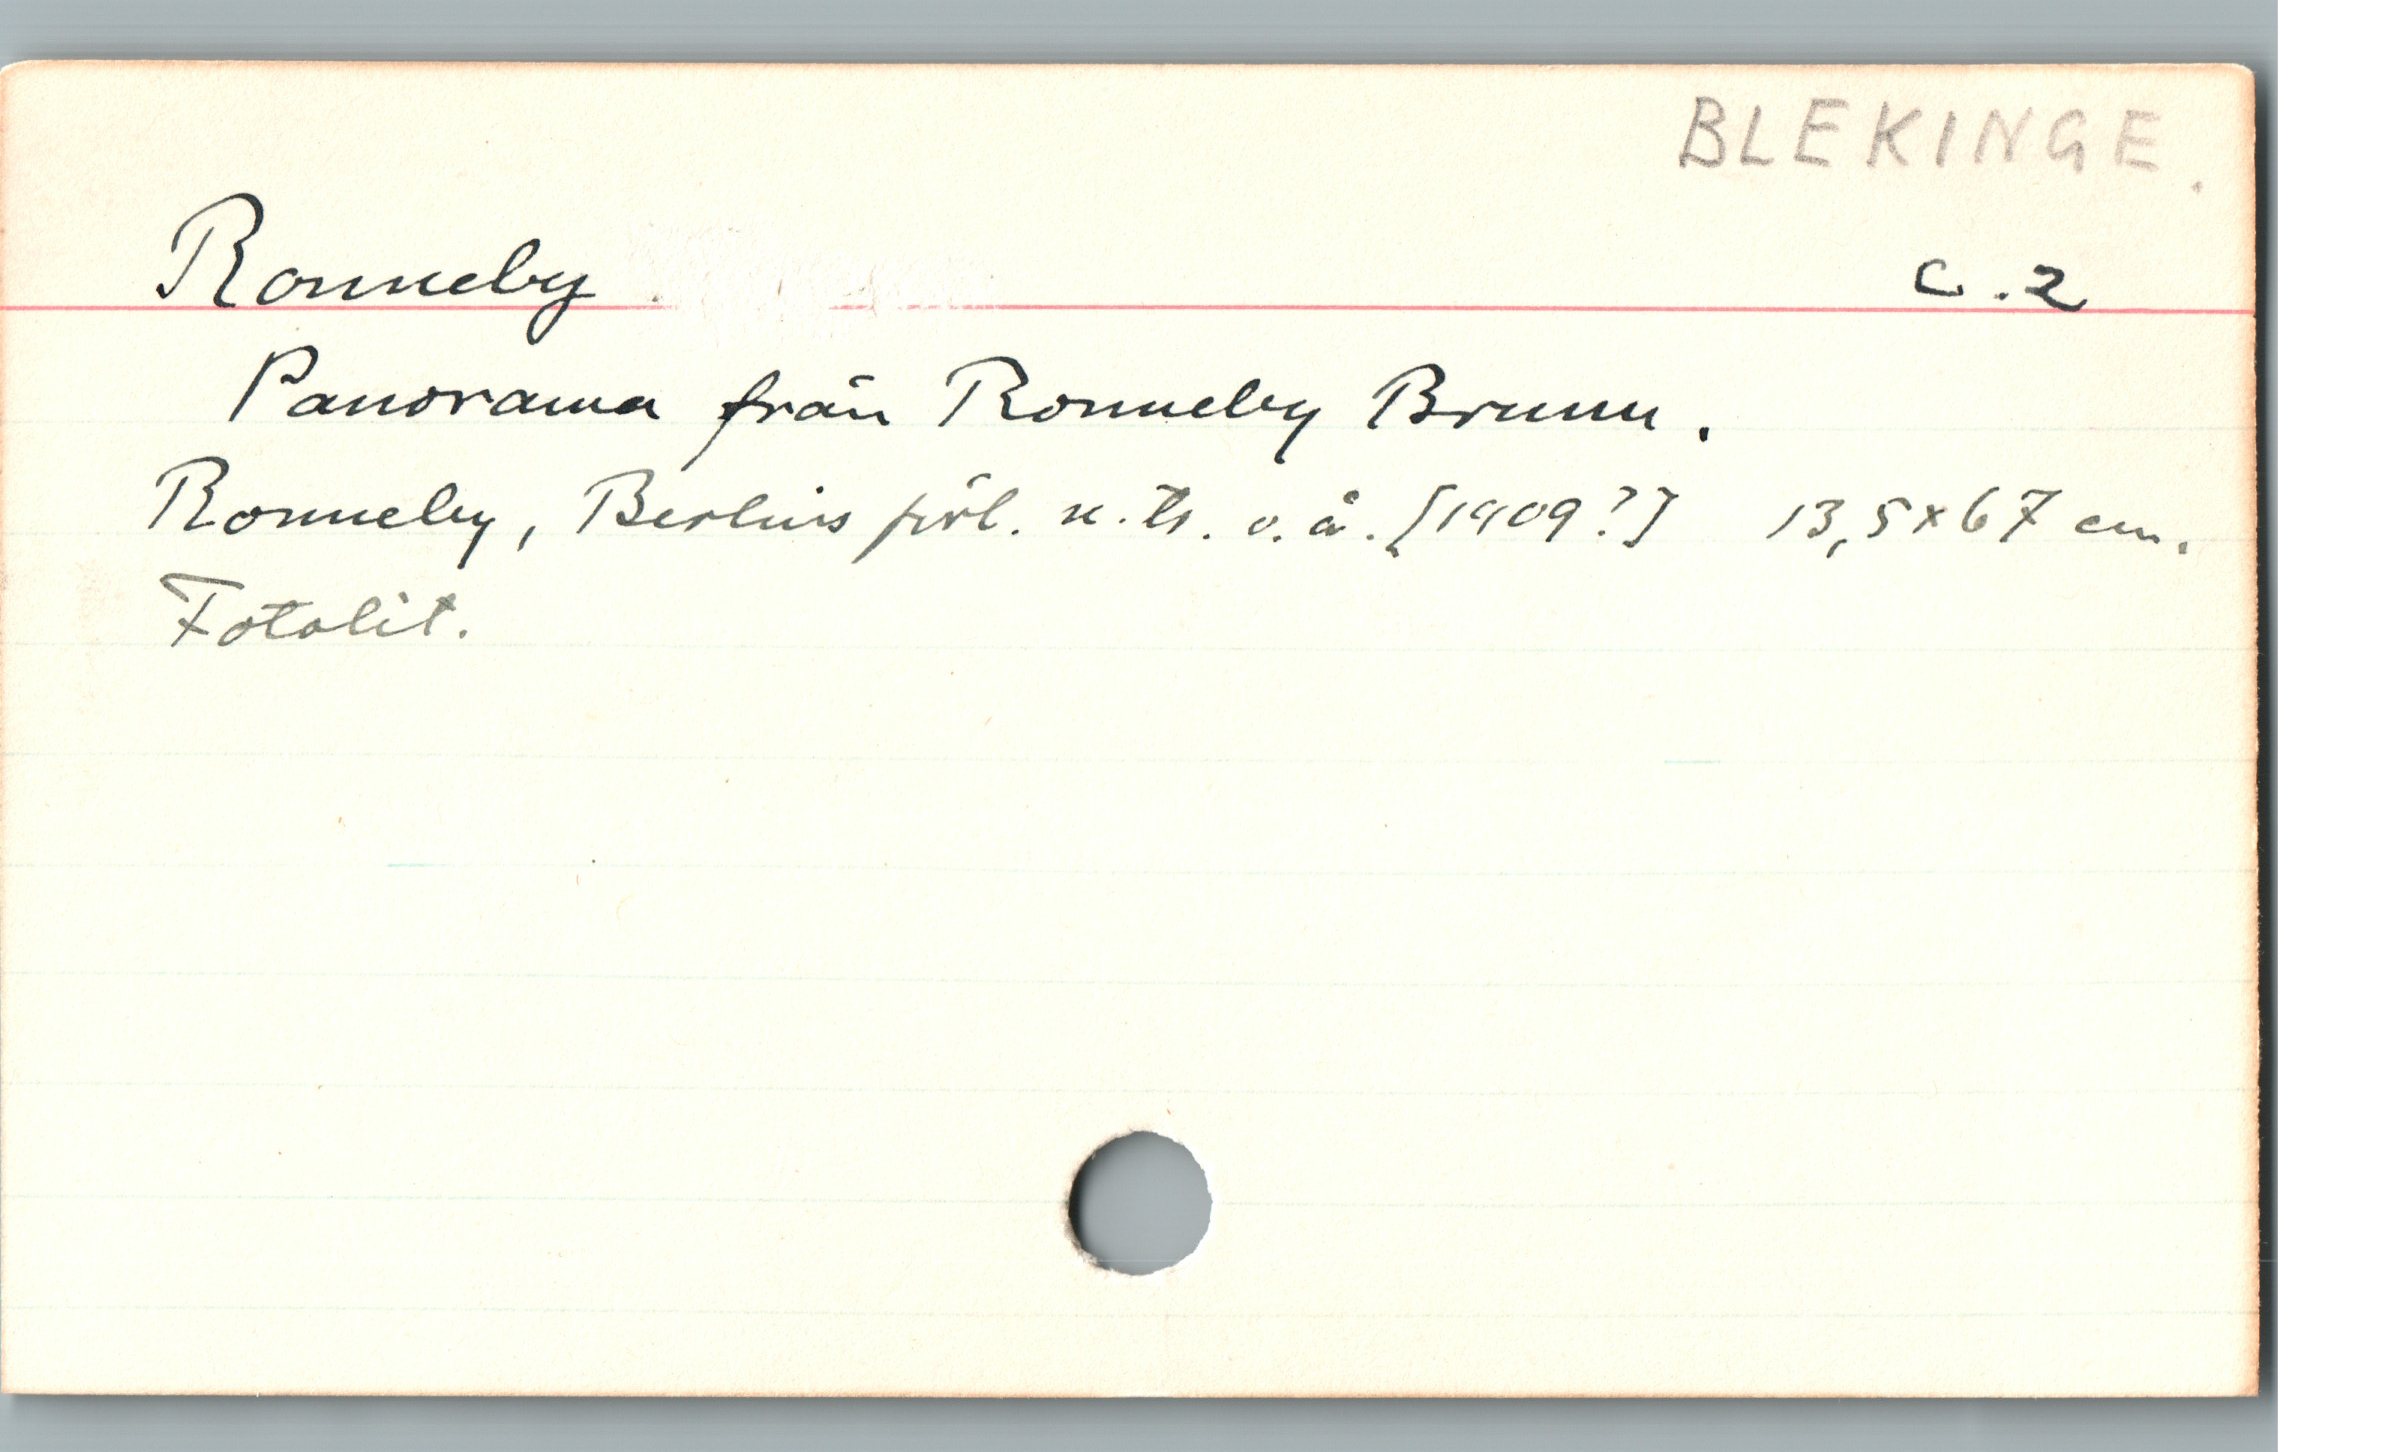 BLEKINGE.
Ronneby. C.2
Panorama från Ronneby Brunn.
Ronneby, Berlins förl. u. tr. o. å. [1909?] 13,5x67 cm.
Fotolit.